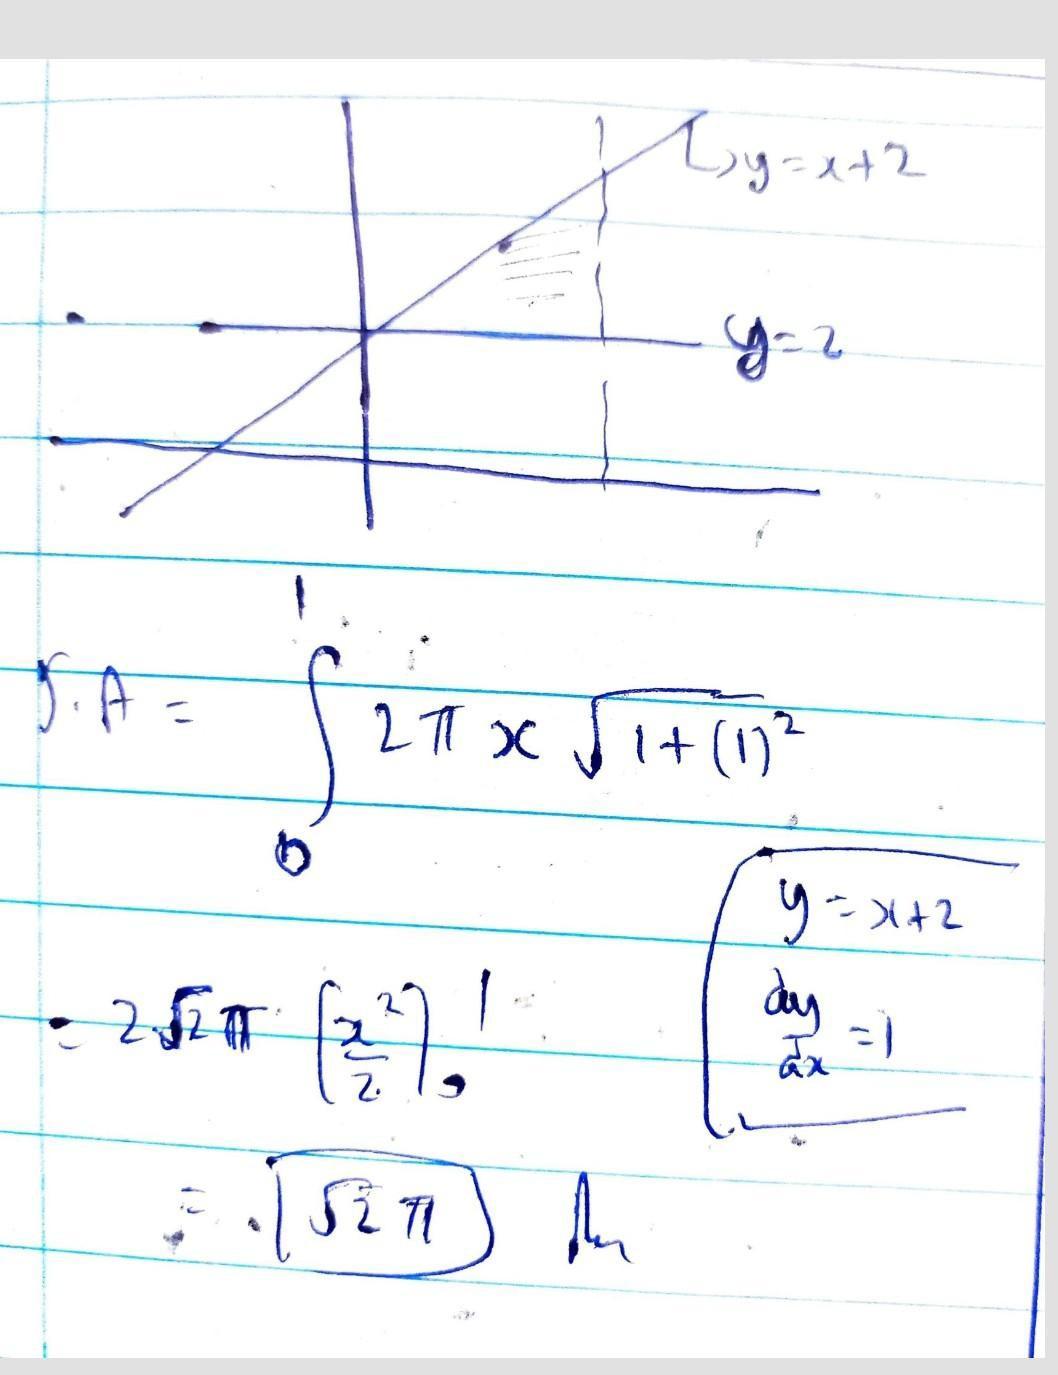 y=x+2
y=2
S.A = ∫₀¹ 2π x √1+(1)²
y=x+2
dy/dx =1
= 2√2π (x²/2)₀¹
= √2 π